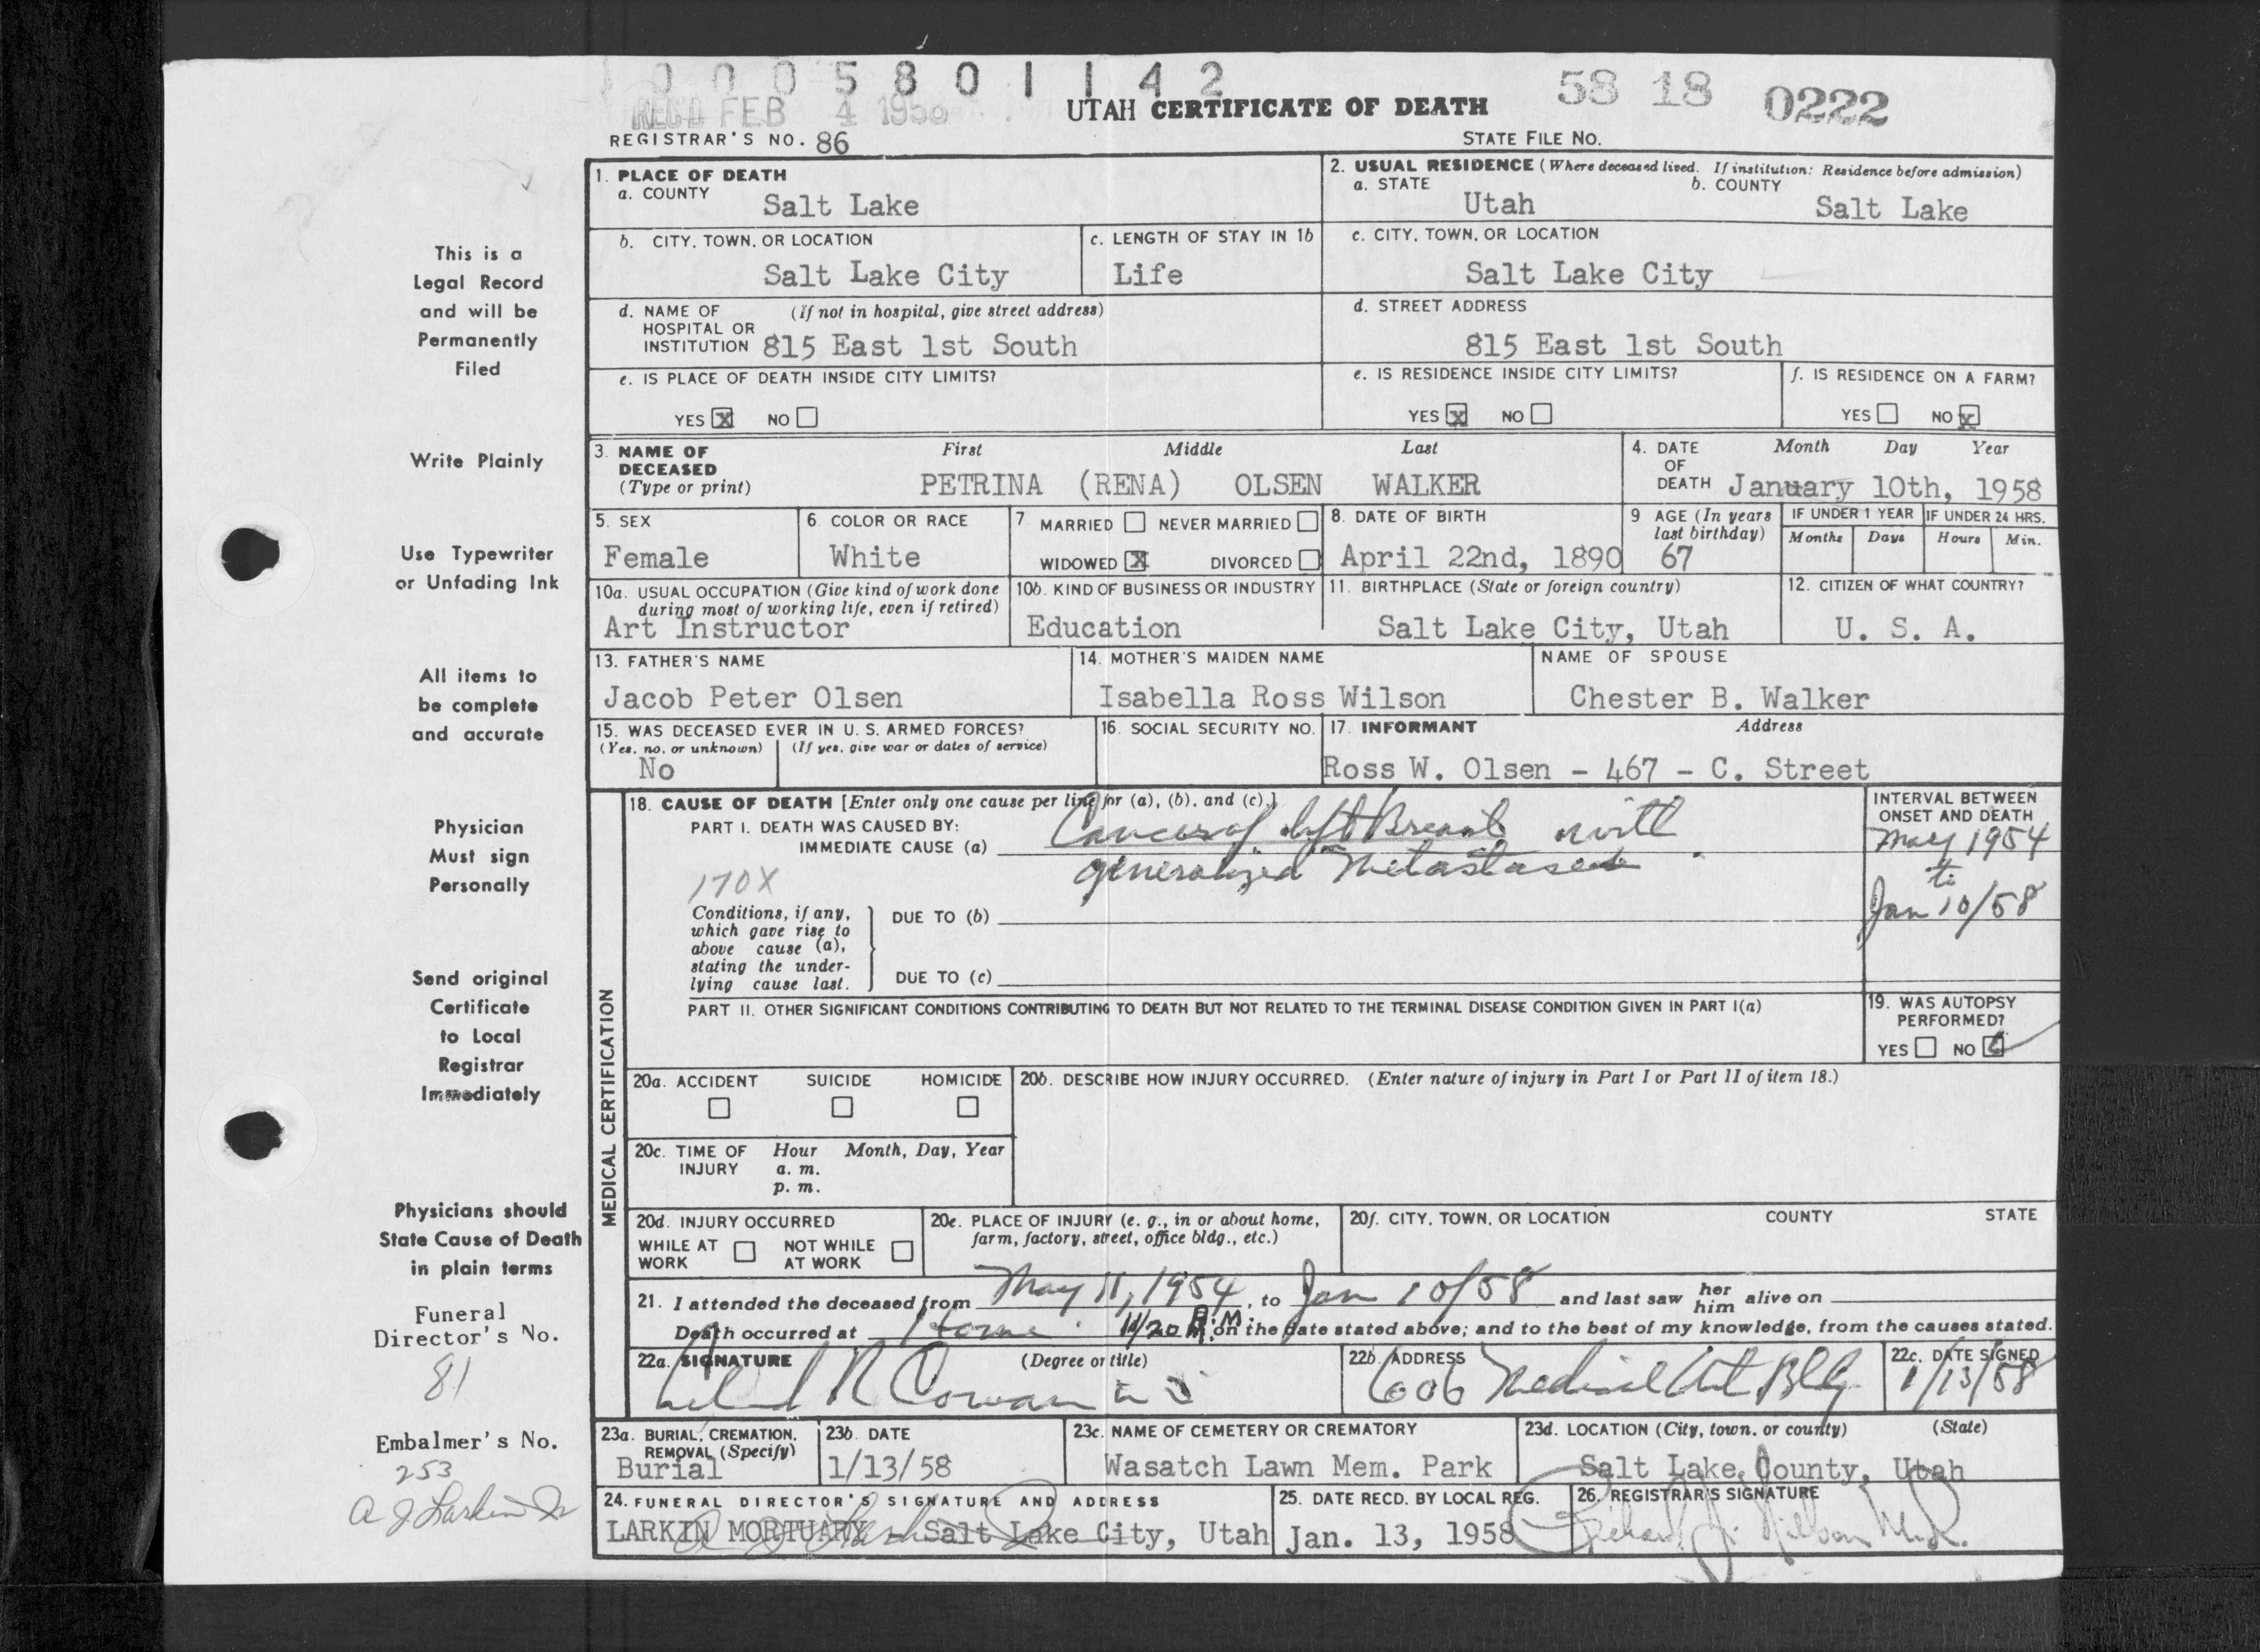 0 0 0 5 8 0 1 1 4 2
REC'D FEB 4 1958
UTAH CERTIFICATE OF DEATH
58 18 0222
REGISTRAR'S NO. 86
STATE FILE NO.
1. PLACE OF DEATH
a. COUNTY
Salt Lake
2. USUAL RESIDENCE (Where deceased lived. If institution: Residence before admission)
a. STATE
Utah
b. COUNTY
Salt Lake
b. CITY, TOWN, OR LOCATION
Salt Lake City
c. LENGTH OF STAY IN 1b
Life
c. CITY, TOWN, OR LOCATION
Salt Lake City
d. NAME OF (If not in hospital, give street address)
HOSPITAL OR
INSTITUTION 815 East 1st South
d. STREET ADDRESS
815 East 1st South
e. IS PLACE OF DEATH INSIDE CITY LIMITS?
YES X NO
e. IS RESIDENCE INSIDE CITY LIMITS?
YES X NO
f. IS RESIDENCE ON A FARM?
YES NO X
3. NAME OF
DECEASED
(Type or print)
First Middle Last
PETRINA (RENA) OLSEN WALKER
4. DATE
OF
DEATH
Month Day Year
January 10th, 1958
5. SEX
Female
6. COLOR OR RACE
White
7. MARRIED NEVER MARRIED
WIDOWED X DIVORCED
8. DATE OF BIRTH
April 22nd, 1890
9 AGE (In years
last birthday)
67
IF UNDER 1 YEAR
Months Days
IF UNDER 24 HRS.
Hours Min.
10a. USUAL OCCUPATION (Give kind of work done
during most of working life, even if retired)
Art Instructor
10b. KIND OF BUSINESS OR INDUSTRY
Education
11. BIRTHPLACE (State or foreign country)
Salt Lake City, Utah
12. CITIZEN OF WHAT COUNTRY?
U. S. A.
13. FATHER'S NAME
Jacob Peter Olsen
14. MOTHER'S MAIDEN NAME
Isabella Ross Wilson
NAME OF SPOUSE
Chester B. Walker
15. WAS DECEASED EVER IN U. S. ARMED FORCES?
(Yes, no, or unknown) (If yes, give war or dates of service)
No
16. SOCIAL SECURITY NO.
17. INFORMANT Address
Ross W. Olsen - 467 - C. Street
MEDICAL CERTIFICATION
18. CAUSE OF DEATH [Enter only one cause per line for (a), (b), and (c).]
PART I. DEATH WAS CAUSED BY:
IMMEDIATE CAUSE (a) Cancer of left Breast with
generalized Metastases
170X
INTERVAL BETWEEN
ONSET AND DEATH
May 1954
to
Jan 10/58
Conditions, if any,
which gave rise to
above cause (a),
stating the under-
lying cause last.
DUE TO (b)
DUE TO (c)
PART II. OTHER SIGNIFICANT CONDITIONS CONTRIBUTING TO DEATH BUT NOT RELATED TO THE TERMINAL DISEASE CONDITION GIVEN IN PART I(a)
19. WAS AUTOPSY
PERFORMED?
YES NO
20a. ACCIDENT SUICIDE HOMICIDE
20b. DESCRIBE HOW INJURY OCCURRED. (Enter nature of injury in Part I or Part II of item 18.)
20c. TIME OF
INJURY
Hour Month, Day, Year
a. m.
p. m.
20d. INJURY OCCURRED
WHILE AT
WORK
NOT WHILE
AT WORK
20e. PLACE OF INJURY (e. g., in or about home,
farm, factory, street, office bldg., etc.)
20f. CITY, TOWN, OR LOCATION COUNTY STATE
21. I attended the deceased from May 11, 1954, to Jan 10/58 and last saw her him alive on
Death occurred at Home 11/20 P.M. on the date stated above; and to the best of my knowledge, from the causes stated.
22a. SIGNATURE (Degree or title)
Leland R Cowan
22b. ADDRESS
606 Medical Art Bldg
22c. DATE SIGNED
1/13/58
23a. BURIAL, CREMATION,
REMOVAL (Specify)
Burial
23b. DATE
1/13/58
23c. NAME OF CEMETERY OR CREMATORY
Wasatch Lawn Mem. Park
23d. LOCATION (City, town, or county) (State)
Salt Lake County, Utah
24. FUNERAL DIRECTOR'S SIGNATURE AND ADDRESS
LARKIN MORTUARY - Salt Lake City, Utah
25. DATE RECD. BY LOCAL REG.
Jan. 13, 1958
26. REGISTRAR'S SIGNATURE
This is a
Legal Record
and will be
Permanently
Filed
Write Plainly
Use Typewriter
or Unfading Ink
All items to
be complete
and accurate
Physician
Must sign
Personally
Send original
Certificate
to Local
Registrar
Immediately
Physicians should
State Cause of Death
in plain terms
Funeral
Director's No.
81
Embalmer's No.
253
A J Larkin Jr